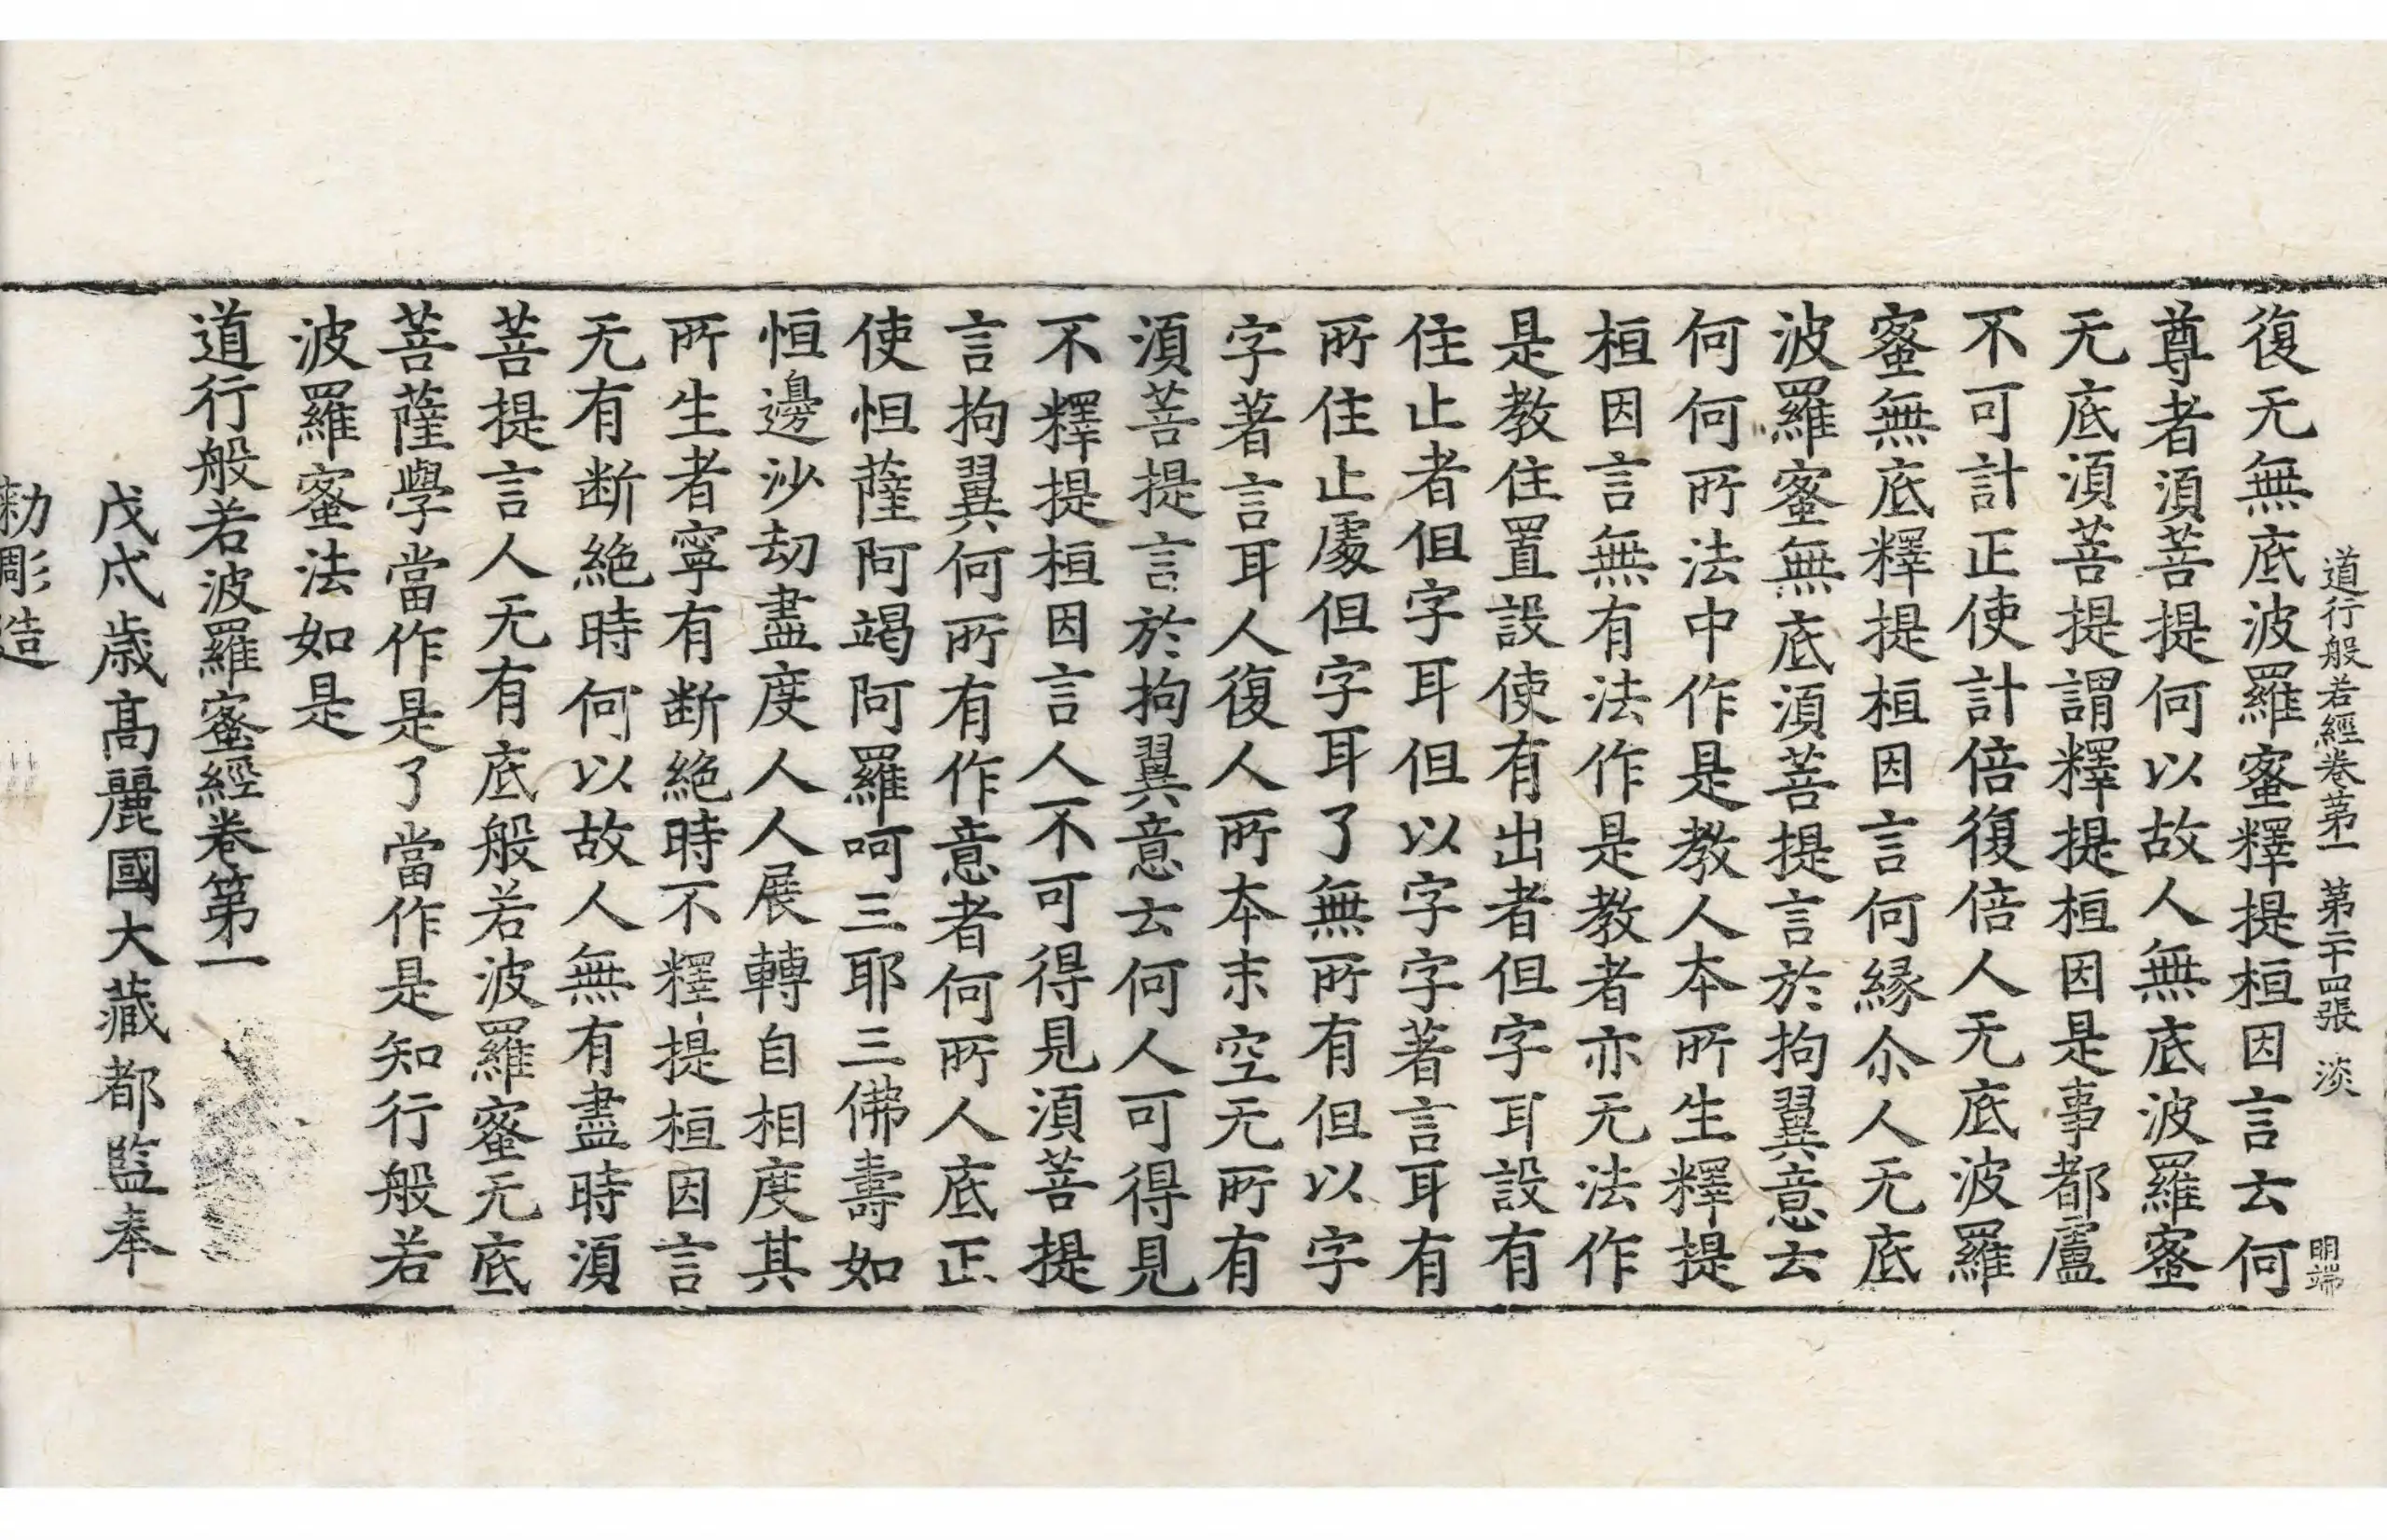 道行般若經卷第一 第二十四張 淡
明端
復无無底波羅蜜釋提桓因言云何
尊者湏菩提何以故人無底波羅蜜
无底湏菩提謂釋提桓因是事都盧
不可計正使計倍復倍人无底波羅
蜜無底釋提桓因言何緣尒人无底
波羅蜜無底湏菩提言於拘翼意云
何何所法中作是教人本所生釋提
桓因言無有法作是教者亦无法作
是教住置設使有出者但字耳設有
住止者但字耳但以字字著言耳有
所住止處但字耳了無所有但以字
字著言耳人復人所本末空无所有
湏菩提言於拘翼意云何人可得見
不釋提桓因言人不可得見湏菩提
言拘翼何所有作意者何所人底正
使怛薩阿竭阿羅呵三耶三佛壽如
恒邊沙劫盡度人人展轉自相度其
所生者寧有断絶時不釋提桓因言
无有断絶時何以故人無有盡時湏
菩提言人无有底般若波羅蜜无底
菩薩學當作是了當作是知行般若
波羅蜜法如是
道行般若波羅蜜經卷第一
戊戌歳高麗國大藏都監奉
勅彫造